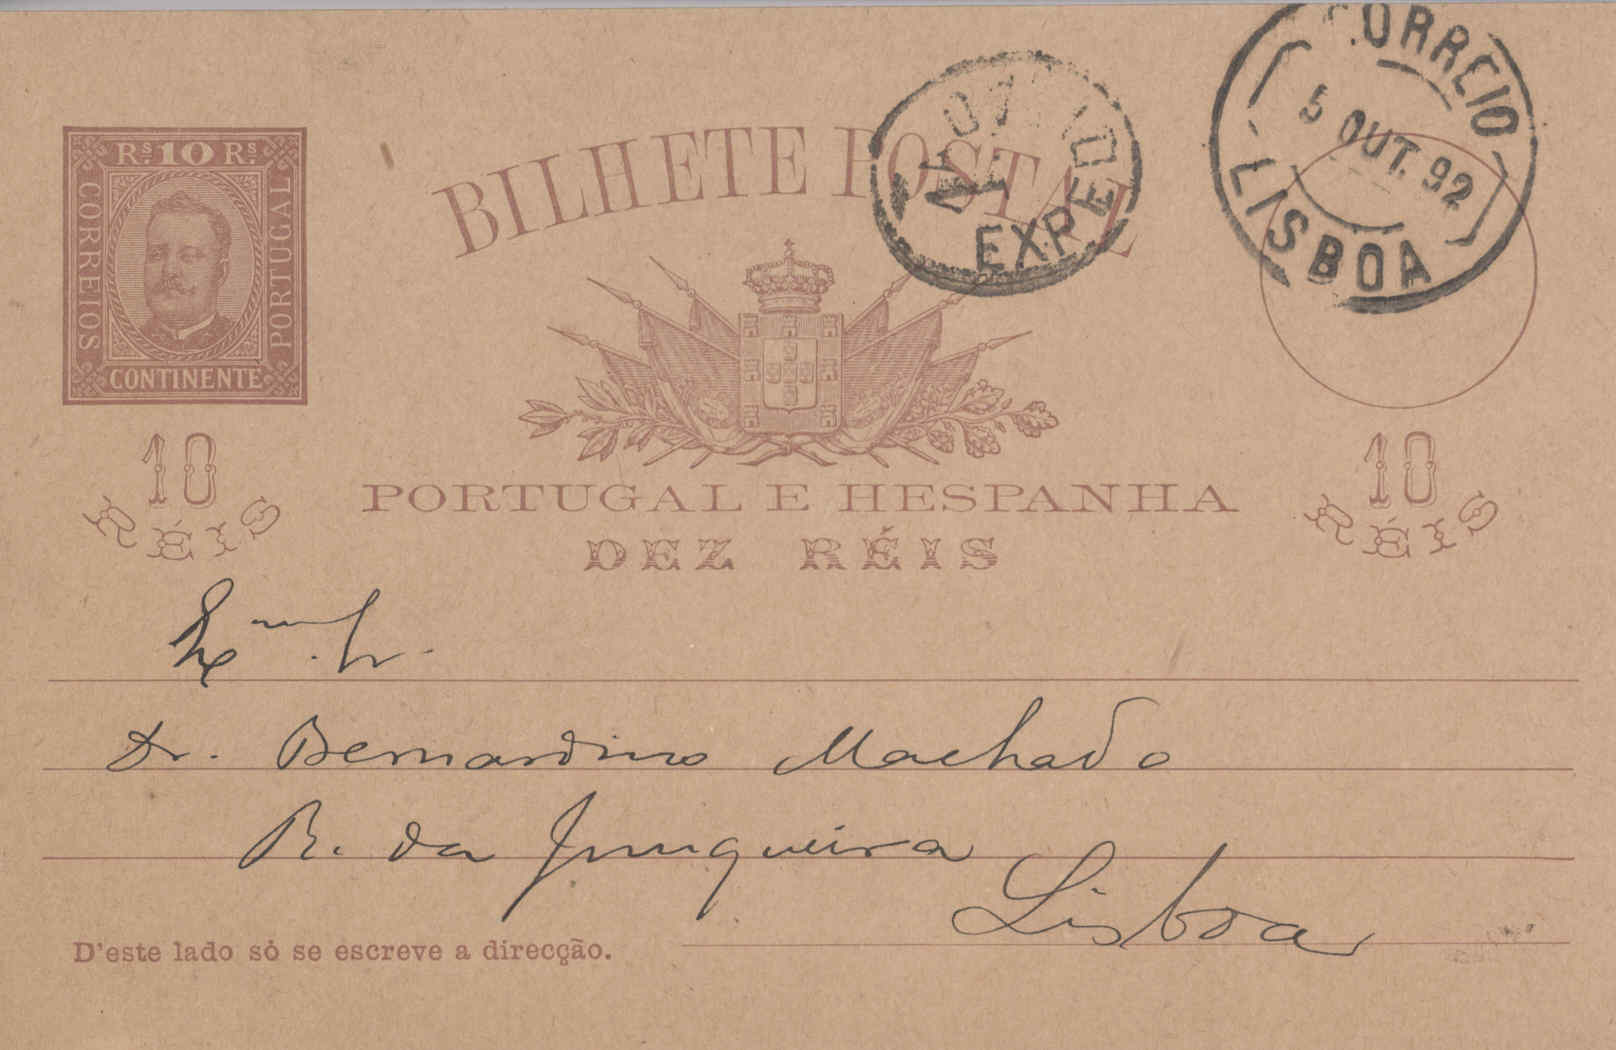 CORREIO
5 OUT. 92
LISBOA
EXPED
Rs. 10 Rs.
CORREIOS
PORTUGAL
CONTINENTE
BILHETE POSTAL
10
RÉIS
10
RÉIS
PORTUGAL E HESPANHA
DEZ RÉIS
Exmo. Sr.
Dr. Bernardino Machado
R. da Junqueira
Lisboa
D'este lado só se escreve a direcção.